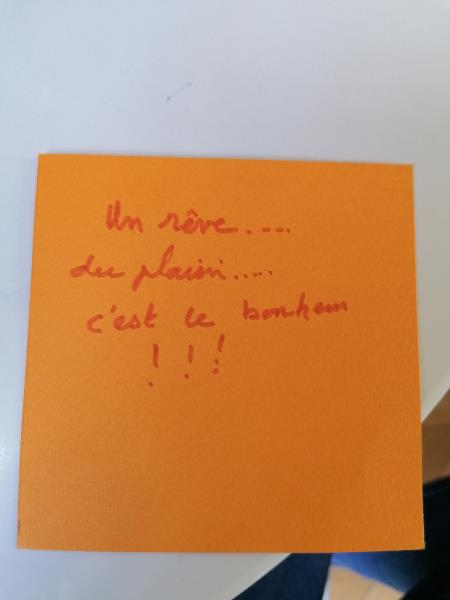 Un rêve....
du plaisir....
c'est le bonheur
! ! !